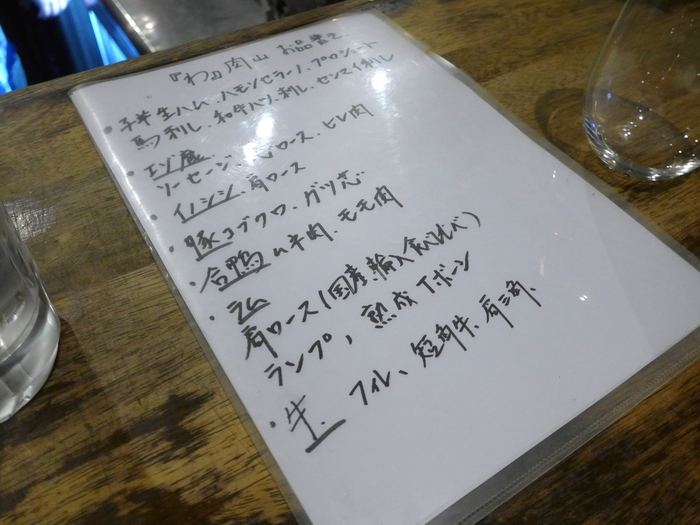 『わ』肉山 お品書き
・子羊生ハム、ハモンセラーノ、プロシュート
馬刺し、和牛ハツ刺し、センマイ刺し
・エゾ鹿
ソーセージ、ロース、ヒレ肉
・イノシシ 肩ロース
・豚 コブクロ、グツ芯
・合鴨 ムネ肉、モモ肉
・ラム
肩ロース(国産、輸入食べ比べ)
ランプ、熟成Tボーン
・牛、フィレ、短角牛、肩三角、